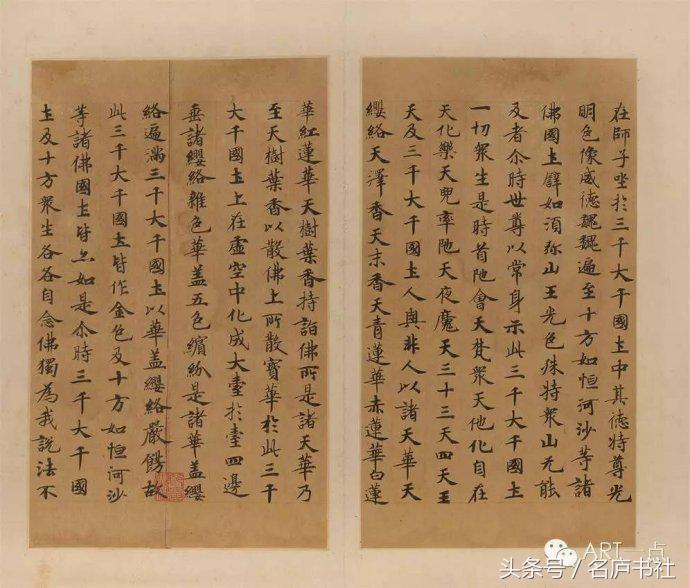 在師子坐於三千大千國土中其德特尊光
明色像威德魏魏遍至十方如恒河沙等諸
佛國土譬如須弥山王光色殊特衆山无能
及者尒時世尊以常身示此三千大千國土
一切衆生是時首陁會天梵衆天他化自在
天化樂天兜率陁天夜魔天三十三天四天王
天及三千大千國土人與非人以諸天華天
纓絡天澤香天末香天青蓮華赤蓮華白蓮
華紅蓮華天樹葉香持詣佛所是諸天華乃
至天樹葉香以散佛上所散寶華於此三千
大千國土上在虛空中化成大臺於臺四邊
垂諸纓絡雜色華盖五色繽紛是諸華盖纓
絡遍滿三千大千國土以華盖纓絡嚴餝故
此三千大千國土皆作金色及十方如恒河沙
等諸佛國土皆亦如是尒時三千大千國
土及十方衆生各各自念佛獨為我說法不
ART一点
头条号/名庐书社